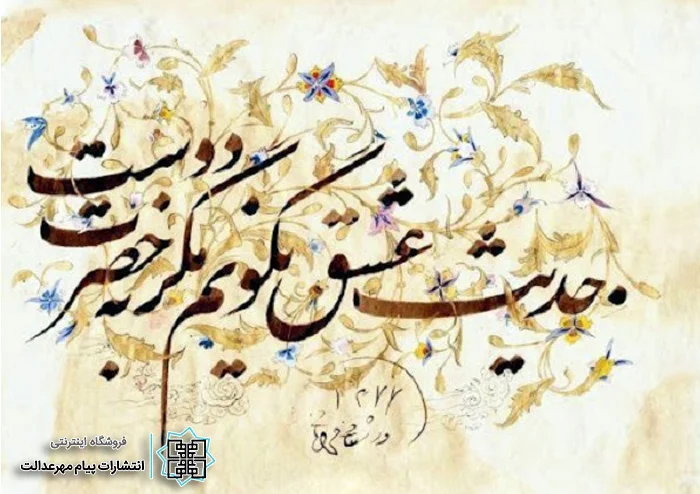 حدیث عشق نگویم مگر به حضرت دوست
۱۳۷۷
فروشگاه اینترنتی
انتشارات پیام مهرعدالت